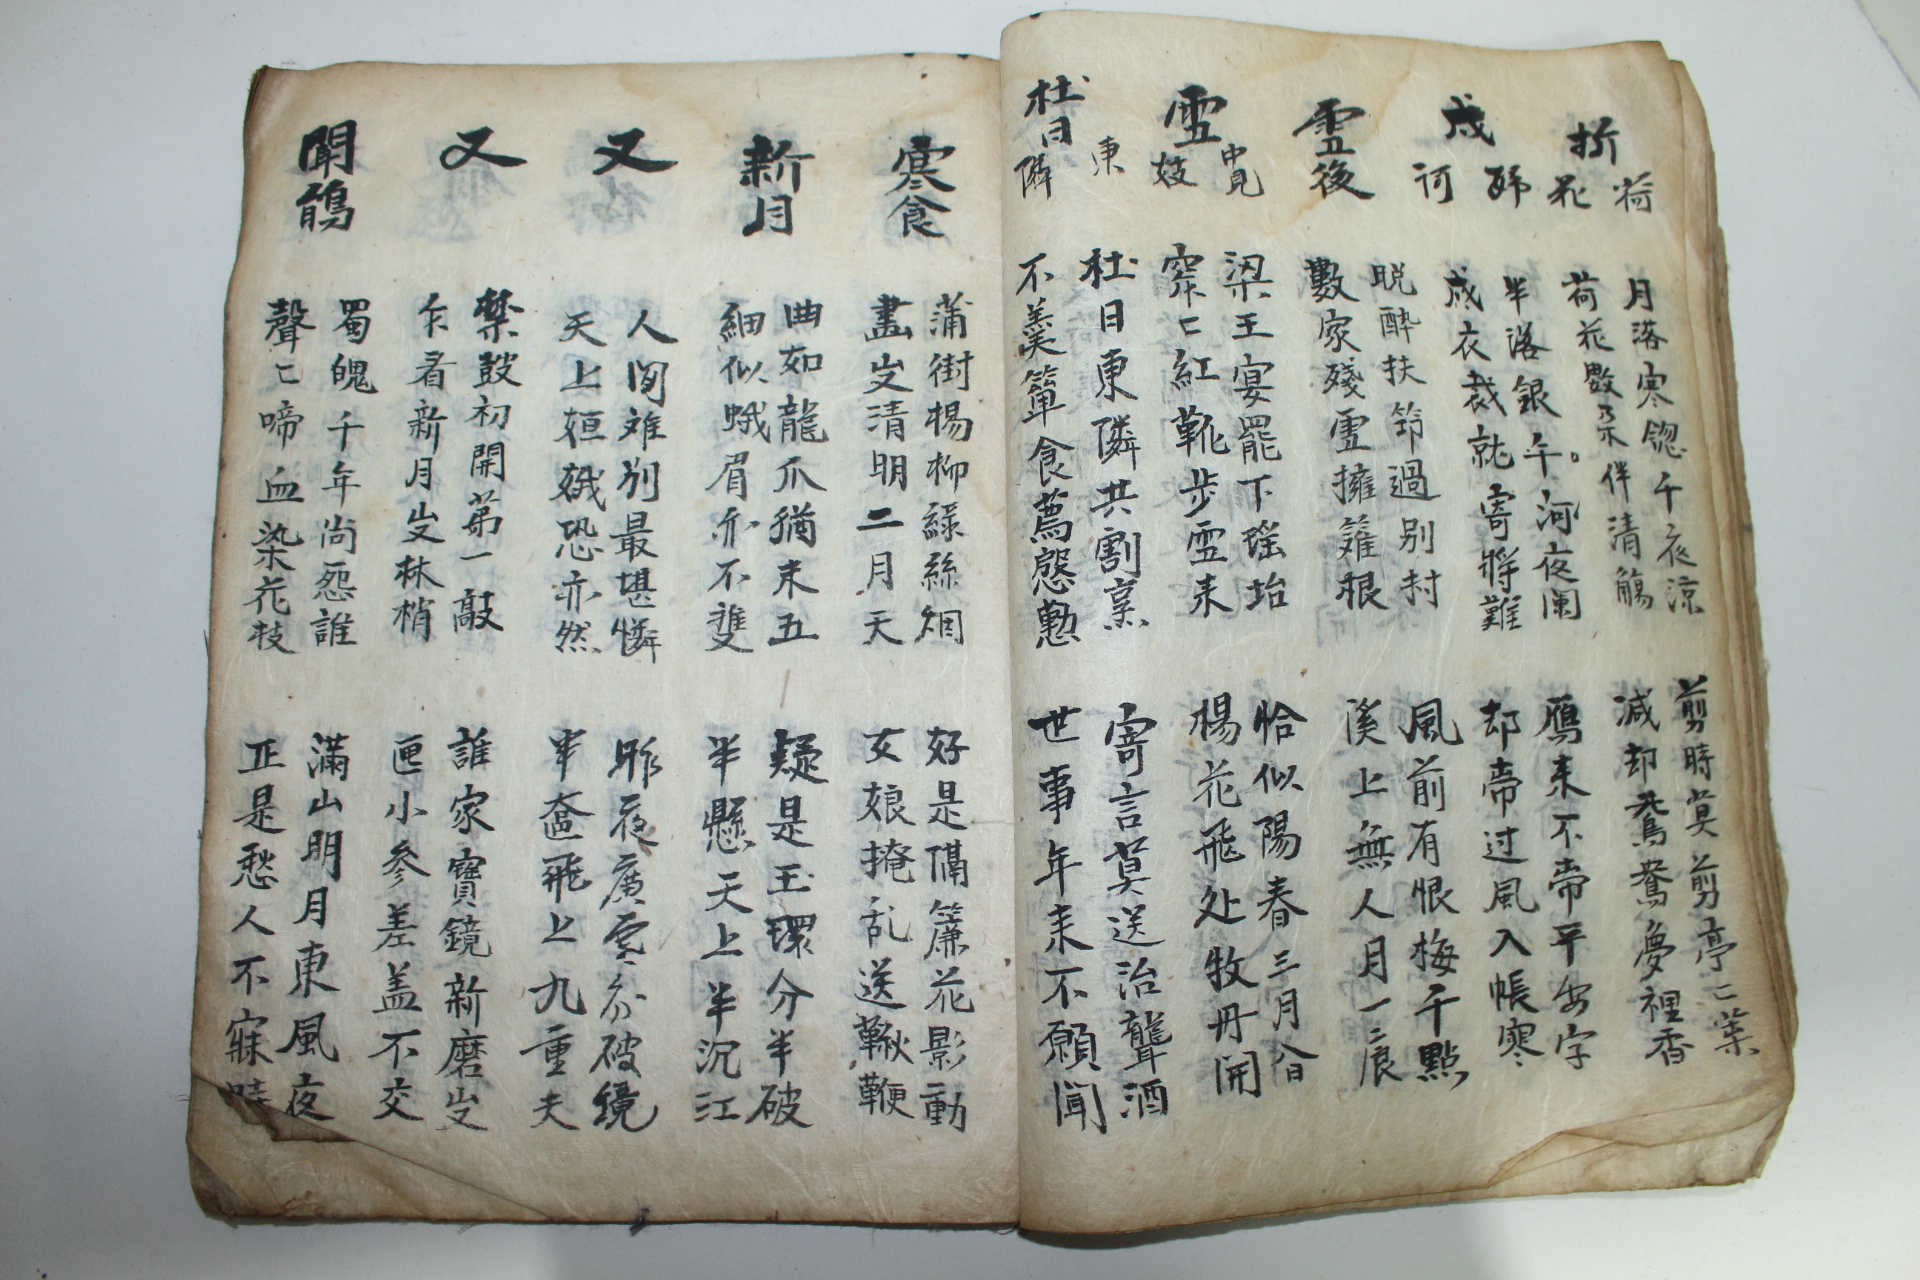 折荷花
月落寒 千夜涼
荷花數朶伴清觴
剪時莫剪亭〻葉
減却鴛鴦夢裡香
戍婦 河
半落銀 河夜闌
戍衣裁就寄將難
鴈来不帶平安字
却帶过風入帳寒
雪後
脫酔扶筇過別村
數家殘雪擁籬根
風前有恨梅千點
溪上無人月一痕
雪中覓妓
梁王宴罷下瑤坮
穿〻紅靴步雪来
恰似陽春三月暮
楊花飛处牧丹開
社日東隣
社日東隣共割烹
不羨簞食薦慇懃
寄言莫送治聾酒
世事年来不願聞
寒食
蒲街楊柳綠絲烟
畵出清明二月天
好是隔簾花影動
女娘掩乱送鞦韆
新月
曲如龍爪猶未五
細似蛾眉亦不雙
疑是玉環分半破
半懸天上半沉江
又
人間难別最堪憐
天上姮娥恐亦然
昨夜廣寒分破鏡
半奩飛上九重天
又
禁鼓初開第一敲
乍看新月出林梢
誰家寶鏡新磨出
匣小參差盖不交
聞鵑
蜀魄千年尙怨誰
聲〻啼血染花枝
滿山明月東風夜
正是愁人不寐時